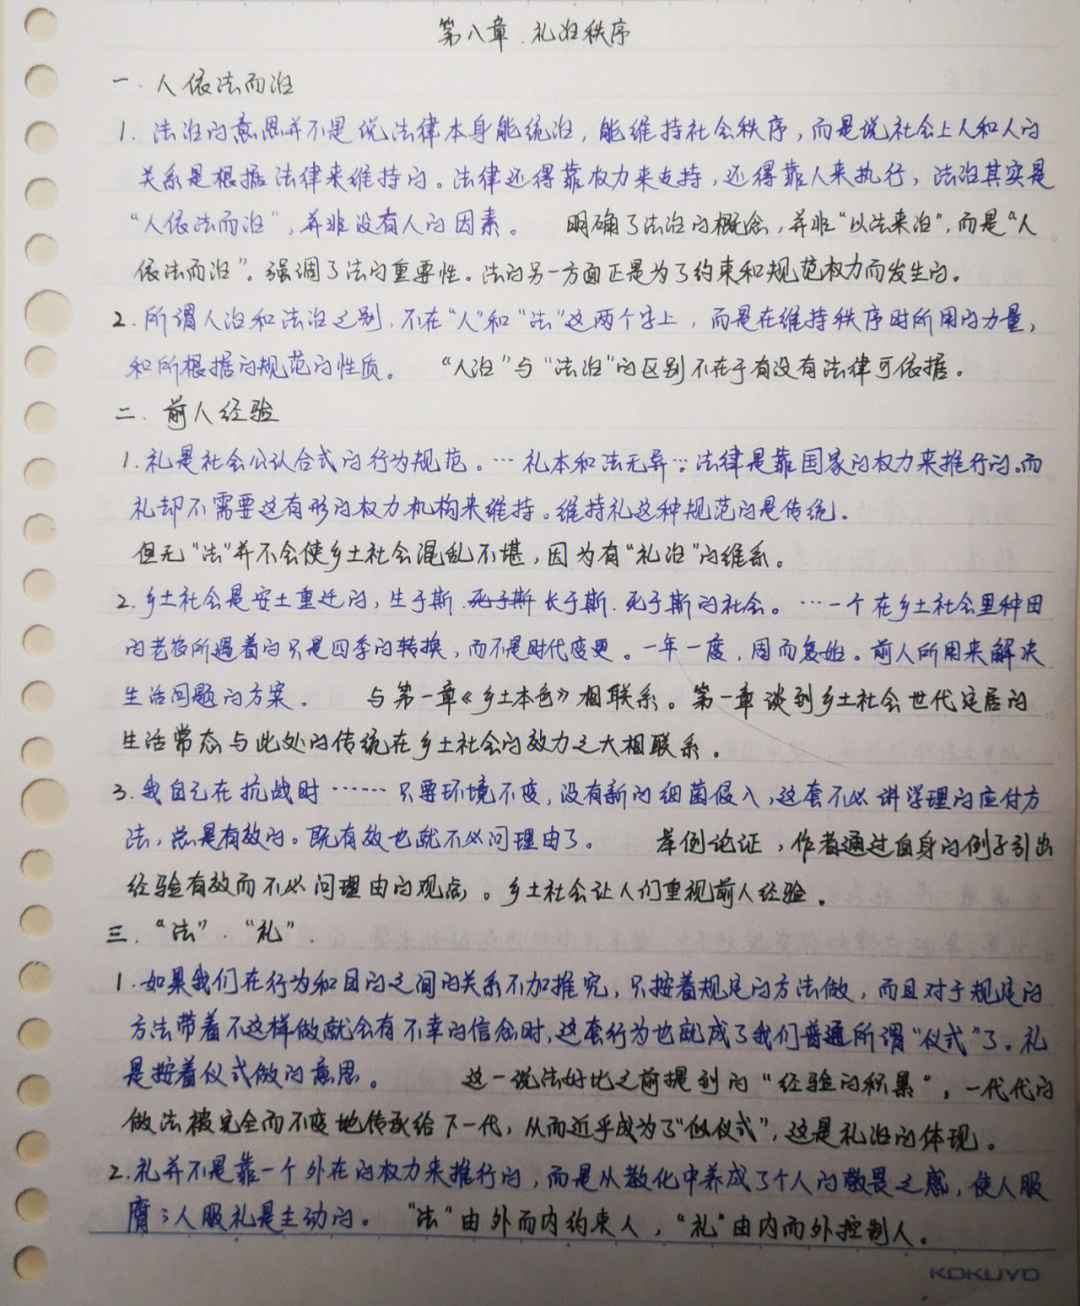 第八章.礼治秩序
一.人依法而治
1.法治的意思并不是说法律本身能统治,能维持社会秩序,而是说社会上人和人的
关系是根据法律来维持的。法律还得靠权力来支持,还得靠人来执行,法治其实是
“人依法而治”,并非没有人的因素。 明确了法治的概念,并非“以法来治”,而是“人
依法而治”。强调了法的重要性。法的另一方面正是为了约束和规范权力而发生的。
2.所谓人治和法治之别,不在“人”和“法”这两个字上,而是在维持秩序时所用的力量,
和所根据的规范的性质。 “人治”与“法治”的区别不在于有没有法律可依据。
二.前人经验
1.礼是社会公认合式的行为规范。…礼本和法无异…法律是靠国家的权力来推行的。而
礼却不需要这有形的权力机构来维持。维持礼这种规范的是传统.
但无“法”并不会使乡土社会混乱不堪,因为有“礼治”的维系。
2.乡土社会是安土重迁的,生于斯.死于斯长于斯.死于斯的社会。…一个在乡土社会里种田
的老农所遇着的只是四季的转换,而不是时代变更。一年一度,周而复始。前人所用来解决
生活问题的方案. 与第一章《乡土本色》相联系。第一章谈到乡土社会世代定居的
生活常态与此处的传统在乡土社会的效力之大相联系。
3.我自己在抗战时……只要环境不变,没有新的细菌侵入,这套不必讲学理的应付方
法,总是有效的。既有效也就不必问理由了。 举例论证,作者通过自身的例子引出
经验有效而不必问理由的观点。乡土社会让人们重视前人经验.
三.“法”.“礼”.
1.如果我们在行为和目的之间的关系不加推究,只按着规定的方法做,而且对于规定的
方法带着不这样做就会有不幸的信念时,这套行为也就成了我们普通所谓“仪式”了。礼
是按着仪式做的意思。 这一说法好比之前提到的“经验的积累”,一代代的
做法被完全而不变地传承给下一代,从而近乎成为了“似仪式”,这是礼治的体现。
2.礼并不是靠一个外在的权力来推行的,而是从教化中养成了个人的敬畏之感,使人服
膺;人服礼是主动的。 “法”由外而内约束人,“礼”由内而外控制人。
KOKUYO